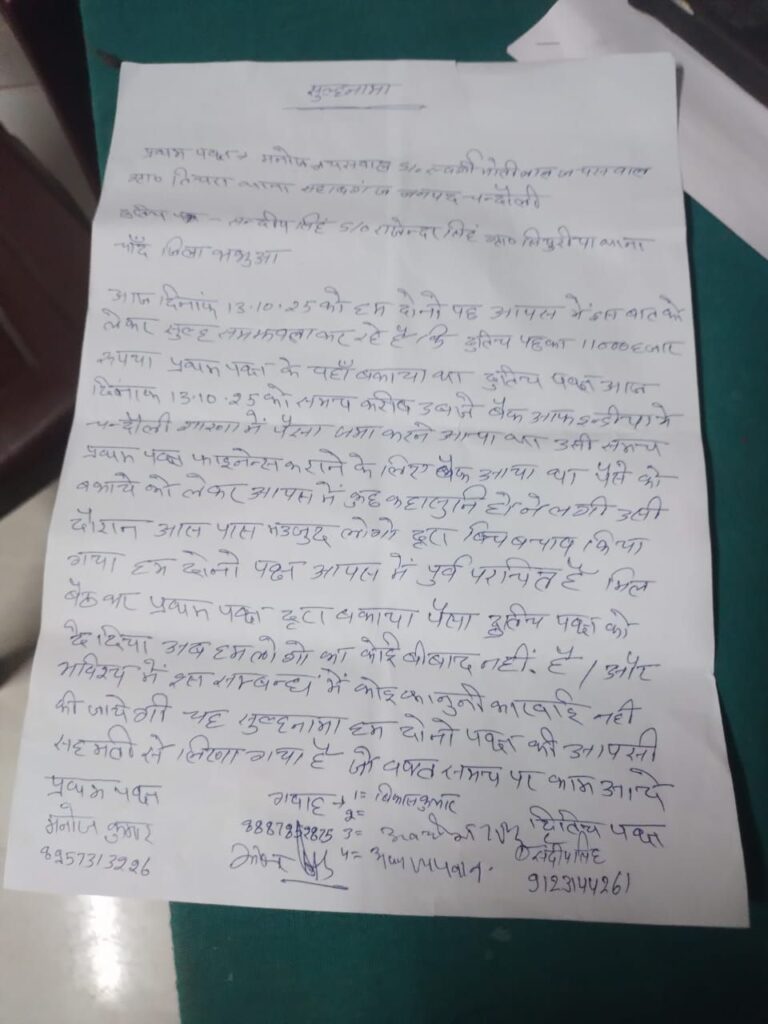 सुल्हनामा
प्रथम पक्ष → मनोज जायसवाल S/o स्वर्गी मोतीलाल जायसवाल
थाना जनपद चन्दौली
द्वितिय पक्ष - सन्दीप सिंह S/o राजेन्दर सिंह थाना
चाँद जिला भभुआ
आज दिनांक 13.10.25 को हम दोनो पक्ष आपस में इस बात को
लेकर सुल्ह समझवता कर रहे है कि दुतिय पक्ष का 11000 हजार
रूपया प्रथम पक्ष के यहाँ बकाया था दुतिय पक्ष आज
दिनांक 13.10.25 को समय करीब 3 बजे बैंक आफ इन्डीया के
चन्दौली शाखा में पैसा जमा करने आया था उसी समय
प्रथम पक्ष फाइनेन्स कराने के लिए बैंक आया था पैसे को
बकाये को लेकर आपस में कुछ कहासुनि होने लगी उसी
दौरान आस पास मउजुद लोगो द्वारा बिच बचाव किया
गया हम दोनो पक्ष आपस में पुर्व परिचित है मिल
बैठ कर प्रथम पक्ष द्वारा बकाया पैसा दुतिय पक्ष को
दे दिया अब हम लोगो का कोई बीबाद नहीं है / और
भविश्य में इस सम्बन्ध में कोइ कानुनी कारवाई नही
की जायेगी यह सुल्हनामा हम दोनो पक्ष की आपसी
सहमती से लिखा गया है जो वक्त समय पर काम आये
प्रथम पक्ष
मनोज कुमार
8957313226
गवाह → 1= विकास कुमार
2=
8887852875 3=
4=
द्वितिय पक्ष
संदीप सिंह
9123144261